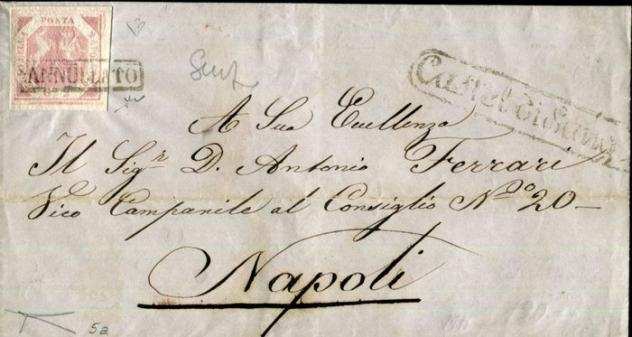 POSTA
ANNULLATO
A Sua Eccellenza
Il Sig.r D. Antonio Ferrari
Vico Campanile al Consiglio No. 20 –
Napoli
5a